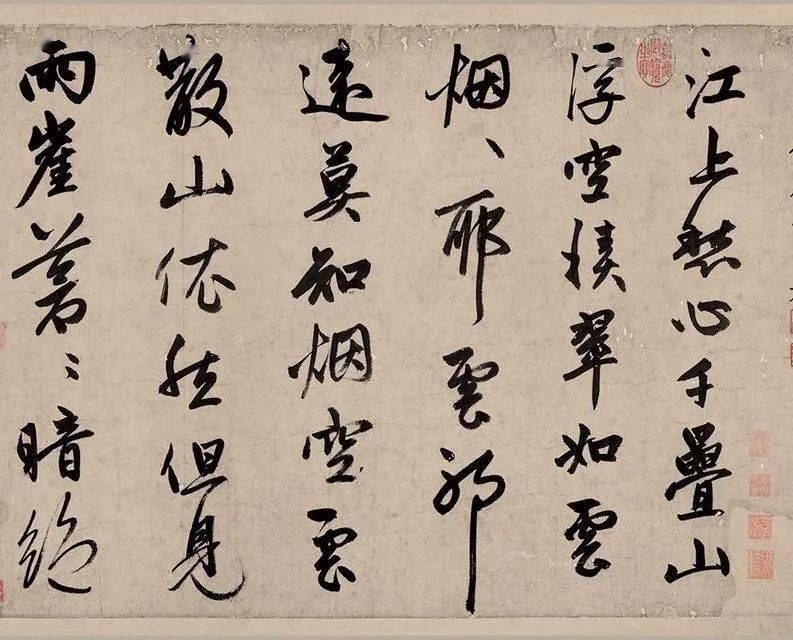 江上愁心千疊山
浮空積翠如雲
烟、耶雲耶
遠莫知烟空雲
散山依然但見
兩崖蒼〻暗絶